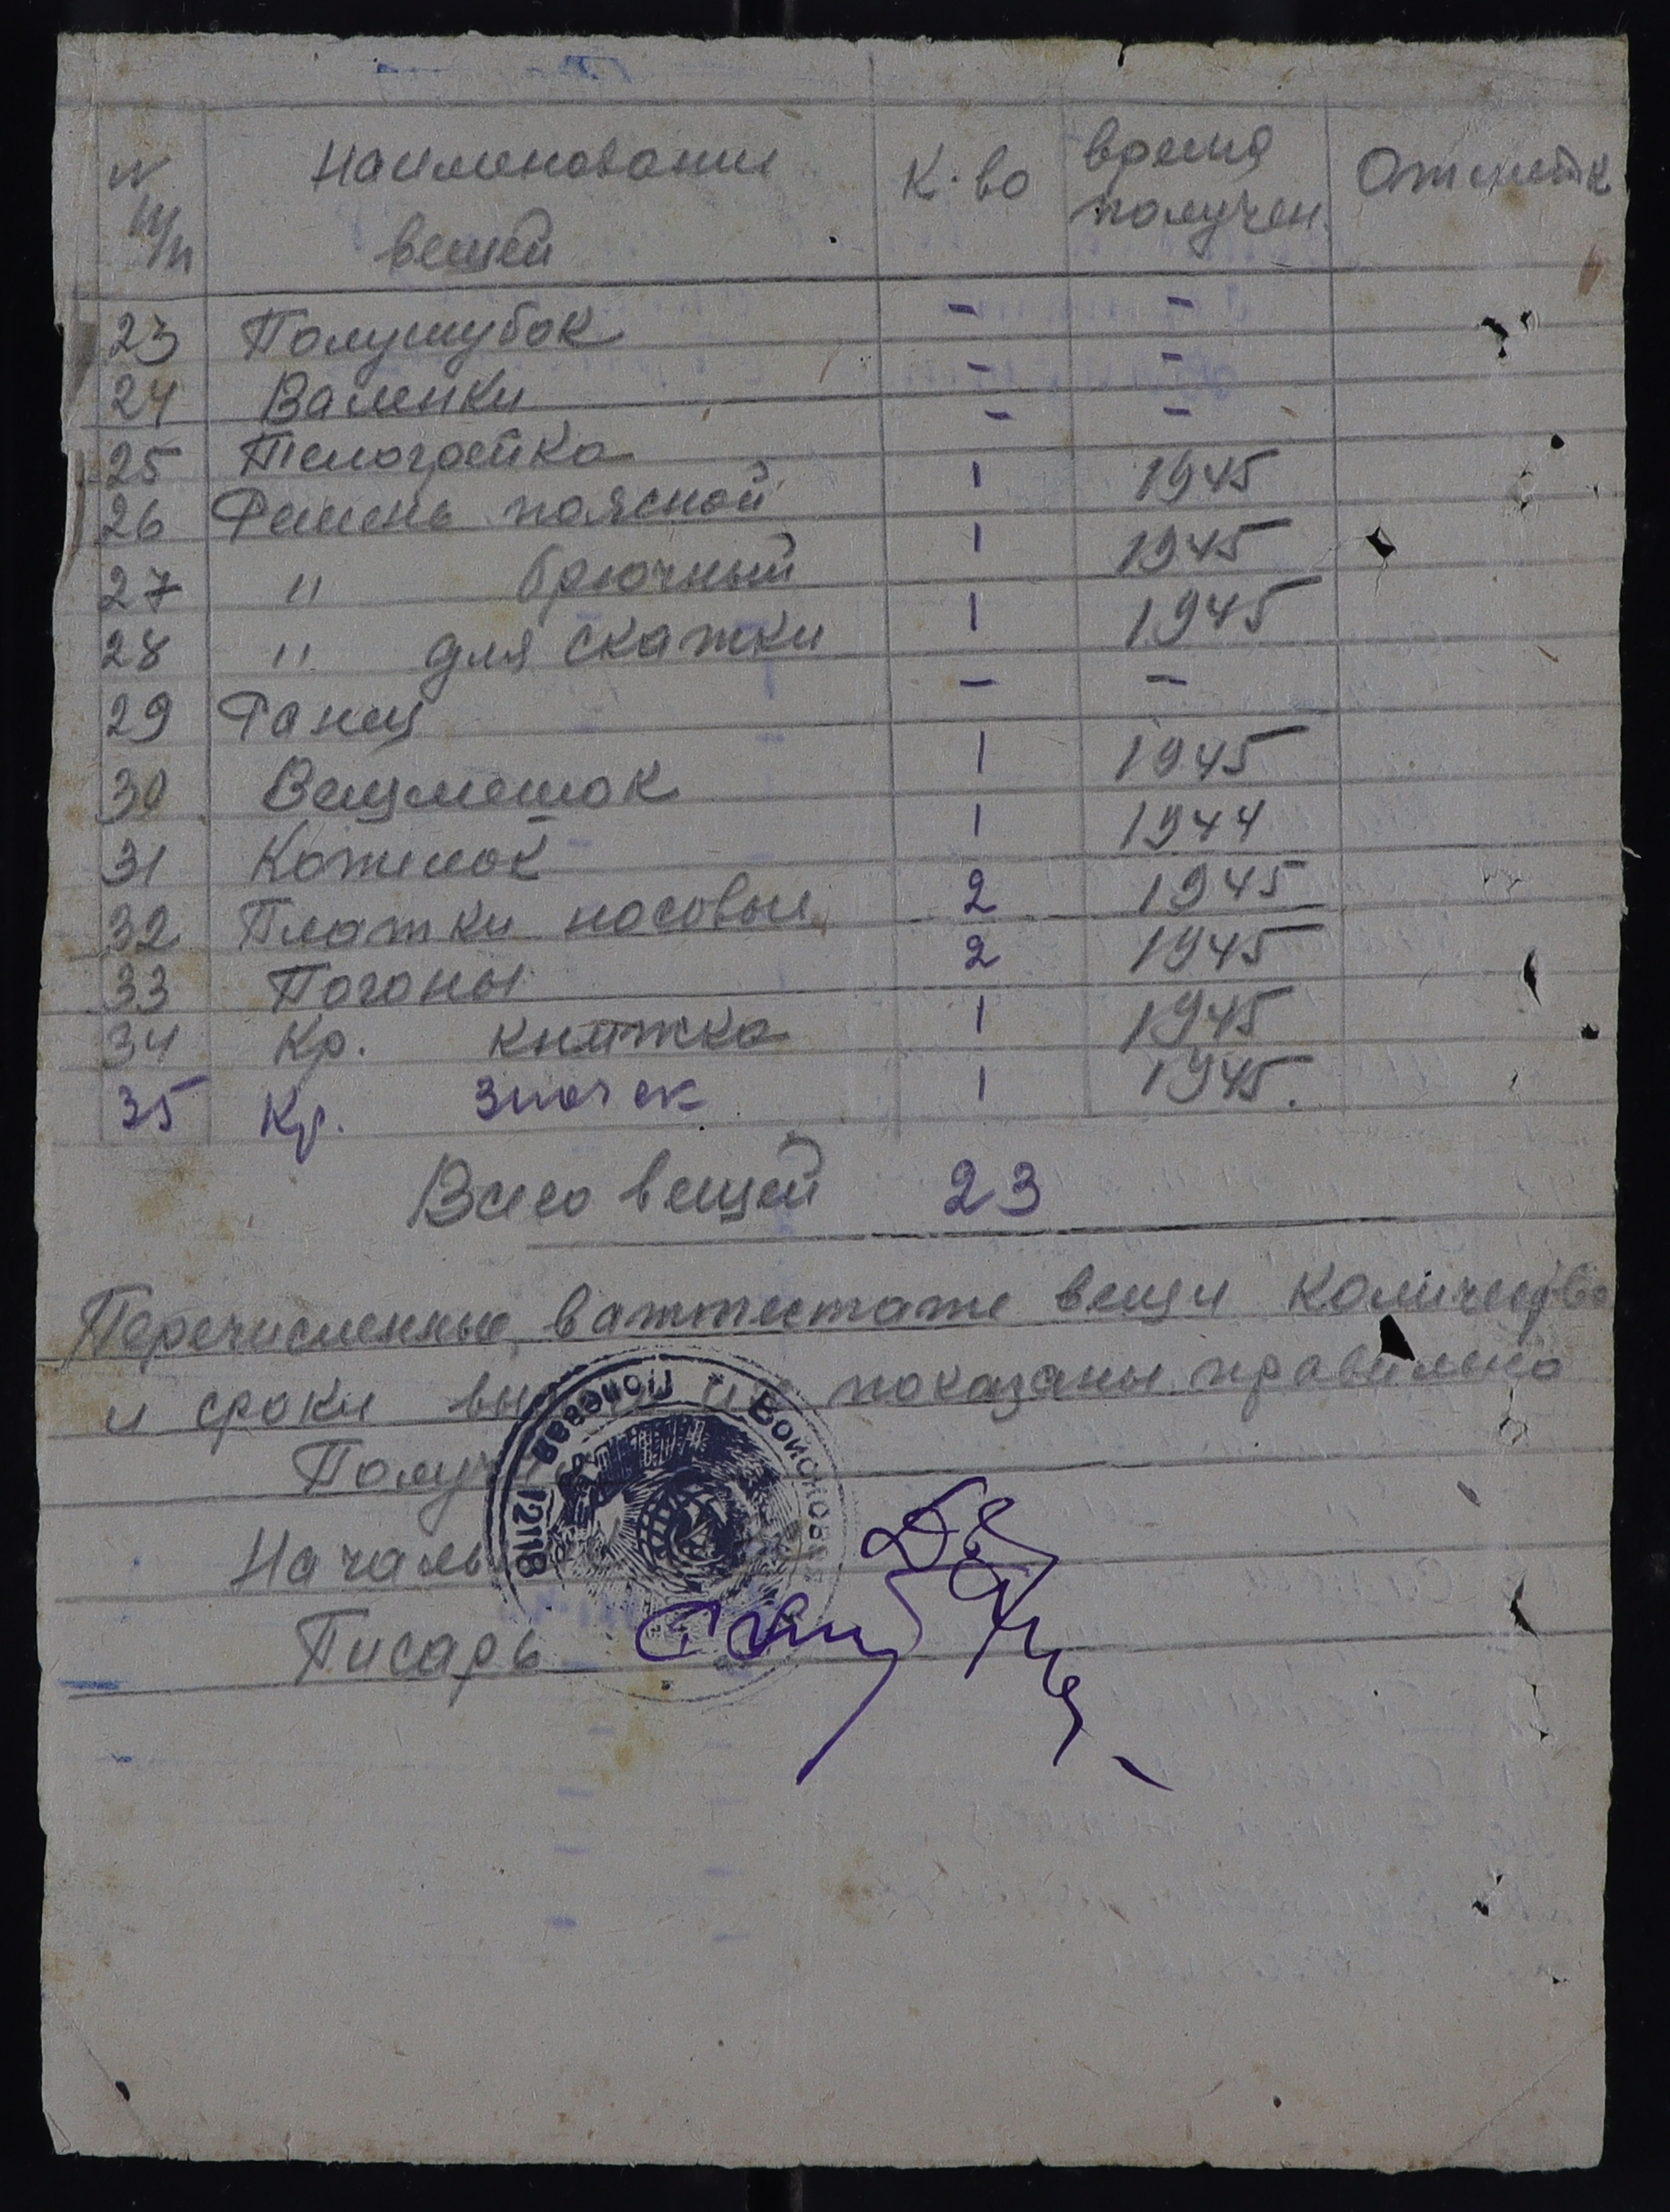 N Наименование К-во время Отметк
п/п вещей получен.
23 Полушубок - -
24 Валенки - -
25 Телогрейка - -
26 Ремень поясной 1 1945
27 " брючный 1 1945
28 " для скатки 1 1945
29 Ранец - -
30 Вещмешок 1 1945
31 Котелок 1 1944
32 Платки носовые 2 1945
33 Погоны 2 1945
34 Кр. книжка 1 1945
35 Кр. значек 1 1945.
Всего вещей 23
Перечисленные в аттестате вещи количество
и сроки показаны правильно
Получ
Началь
Писарь
Полевая Войсковая
12118